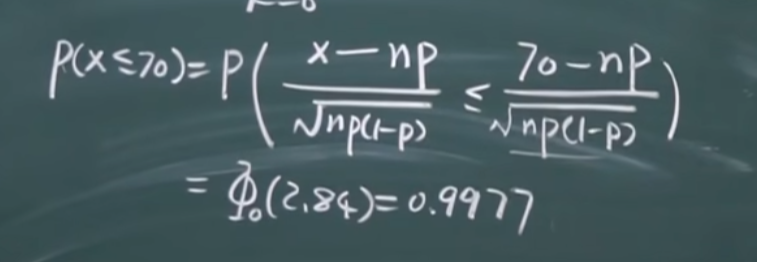 P(x≤70)=P( (x-np)/√(np(1-p)) ≤ (70-np)/√(np(1-p)) )
=Φ₀(2.84)=0.9977